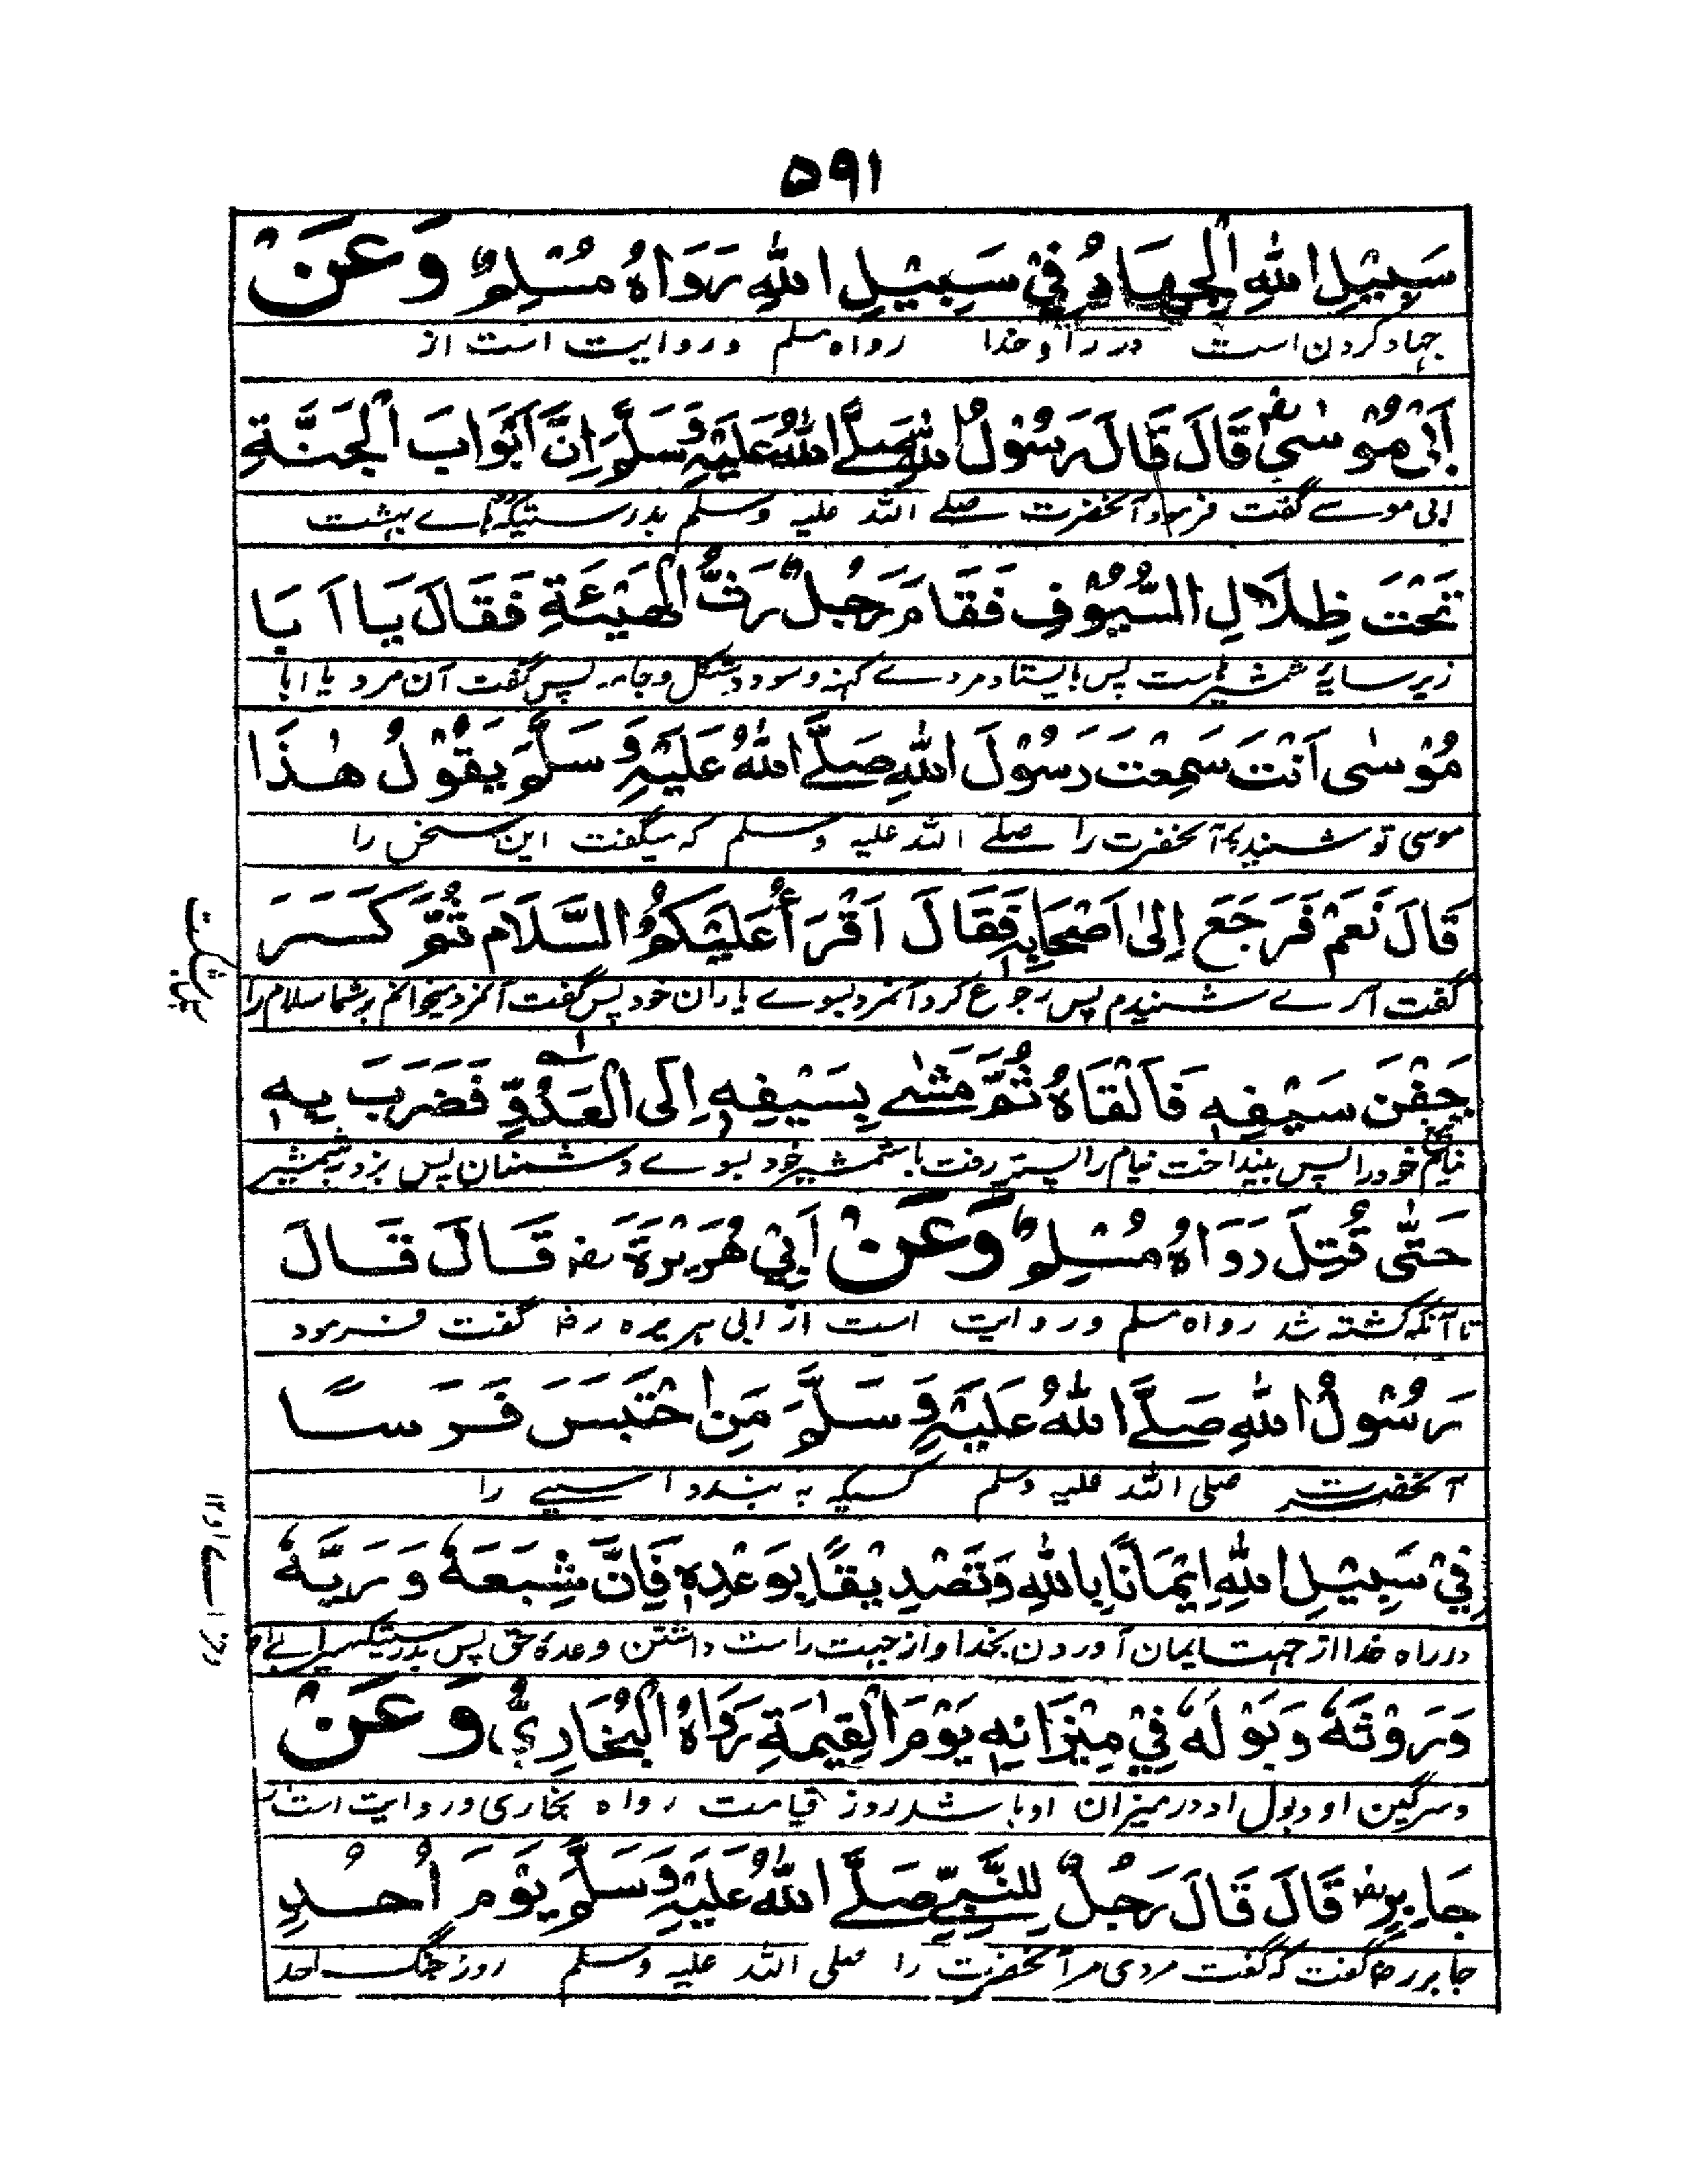 ۵۹۱
سَبِيْلِ اللهِ الْجِهَادُ فِيْ سَبِيْلِ اللهِ رَوَاهُ مُسْلِمٌ وَعَنْ
جہاد کردن است در راه خدا رواه مسلم و روایت است از
اَبِيْ مُوْسٰى رض قَالَ قَالَ رَسُوْلُ اللهِ صَلَّے اللهُ عَلَيْهِ وَسَلَّمَ اِنَّ اَبْوَابَ الْجَنَّةِ
ابی موسے گفت فرمود آنحضرت صلے الله علیه وسلم بدرستیکه هاے بهشت
تَحْتَ ظِلَالِ السُّيُوْفِ فَقَامَ رَجُلٌ رَثُّ الْهَيْئَةِ فَقَالَ يَا اَبَا
زیر سایهٔ شمشیر است پس بایستاد مردے کهنه و سوده شکل و جامه پس گفت آن مرد یا ابا
مُوْسٰى اَنْتَ سَمِعْتَ رَسُوْلَ اللهِ صَلَّے اللهُ عَلَيْهِ وَسَلَّمَ يَقُوْلُ هٰذَا
موسی تو شنیدی آنحضرت را صلے الله علیه وسلم که میگفت این سخن را
قَالَ نَعَمْ فَرَجَعَ اِلٰى اَصْحَابِهٖ فَقَالَ اَقْرَأُ عَلَيْكُمُ السَّلَامَ ثُمَّ كَسَرَ
گفت آرے شنیدم پس رجوع کرد آنمرد بسوے یاران خود پس گفت آنمرد میخوانم بر شما سلام را
جَفْنَ سَيْفِهٖ فَاَلْقَاهُ ثُمَّ مَشٰے بِسَيْفِهٖ اِلَى الْعَدُوِّ فَضَرَبَ بِهٖ
نیام خود را پس بینداخت نیام را پستر رفت با شمشیر خود بسوے دشمنان پس بزد به شمشیر
حَتّٰى قُتِلَ رَوَاهُ مُسْلِمٌ وَعَنْ اَبِيْ هُرَيْرَةَ رض قَالَ قَالَ
تا آنکه کشته شد رواه مسلم و روایت است از ابی هریره رض گفت فرمود
رَسُوْلُ اللهِ صَلَّے اللهُ عَلَيْهِ وَسَلَّمَ مَنِ احْتَبَسَ فَرَسًا
آنحضرت صلی الله علیه وسلم کسیکه به بندد اسپے را
فِيْ سَبِيْلِ اللهِ اِيْمَانًا بِاللهِ وَتَصْدِيْقًا بِوَعْدِهٖ فَاِنَّ شِبَعَهٗ وَرَيَّهٗ
در راه خدا از جهت ایمان آوردن بخدا و از جهت راست داشتن وعدهٔ حق پس بدرستیکه سیرابی
وَرَوْثَهٗ وَبَوْلَهٗ فِيْ مِيْزَانِهٖ يَوْمَ الْقِيٰمَةِ رَوَاهُ الْبُخَارِيُّ وَعَنْ
و سرگین او و بول او در میزان او باشد روز قیامت رواه بخاری و روایت است
جَابِرٍ رض قَالَ قَالَ رَجُلٌ لِلنَّبِيِّ صَلَّے اللهُ عَلَيْهِ وَسَلَّمَ يَوْمَ اُحُدٍ
جابر رض گفت که گفت مردی مر آنحضرت را صلی الله علیه وسلم روز جنگ احد